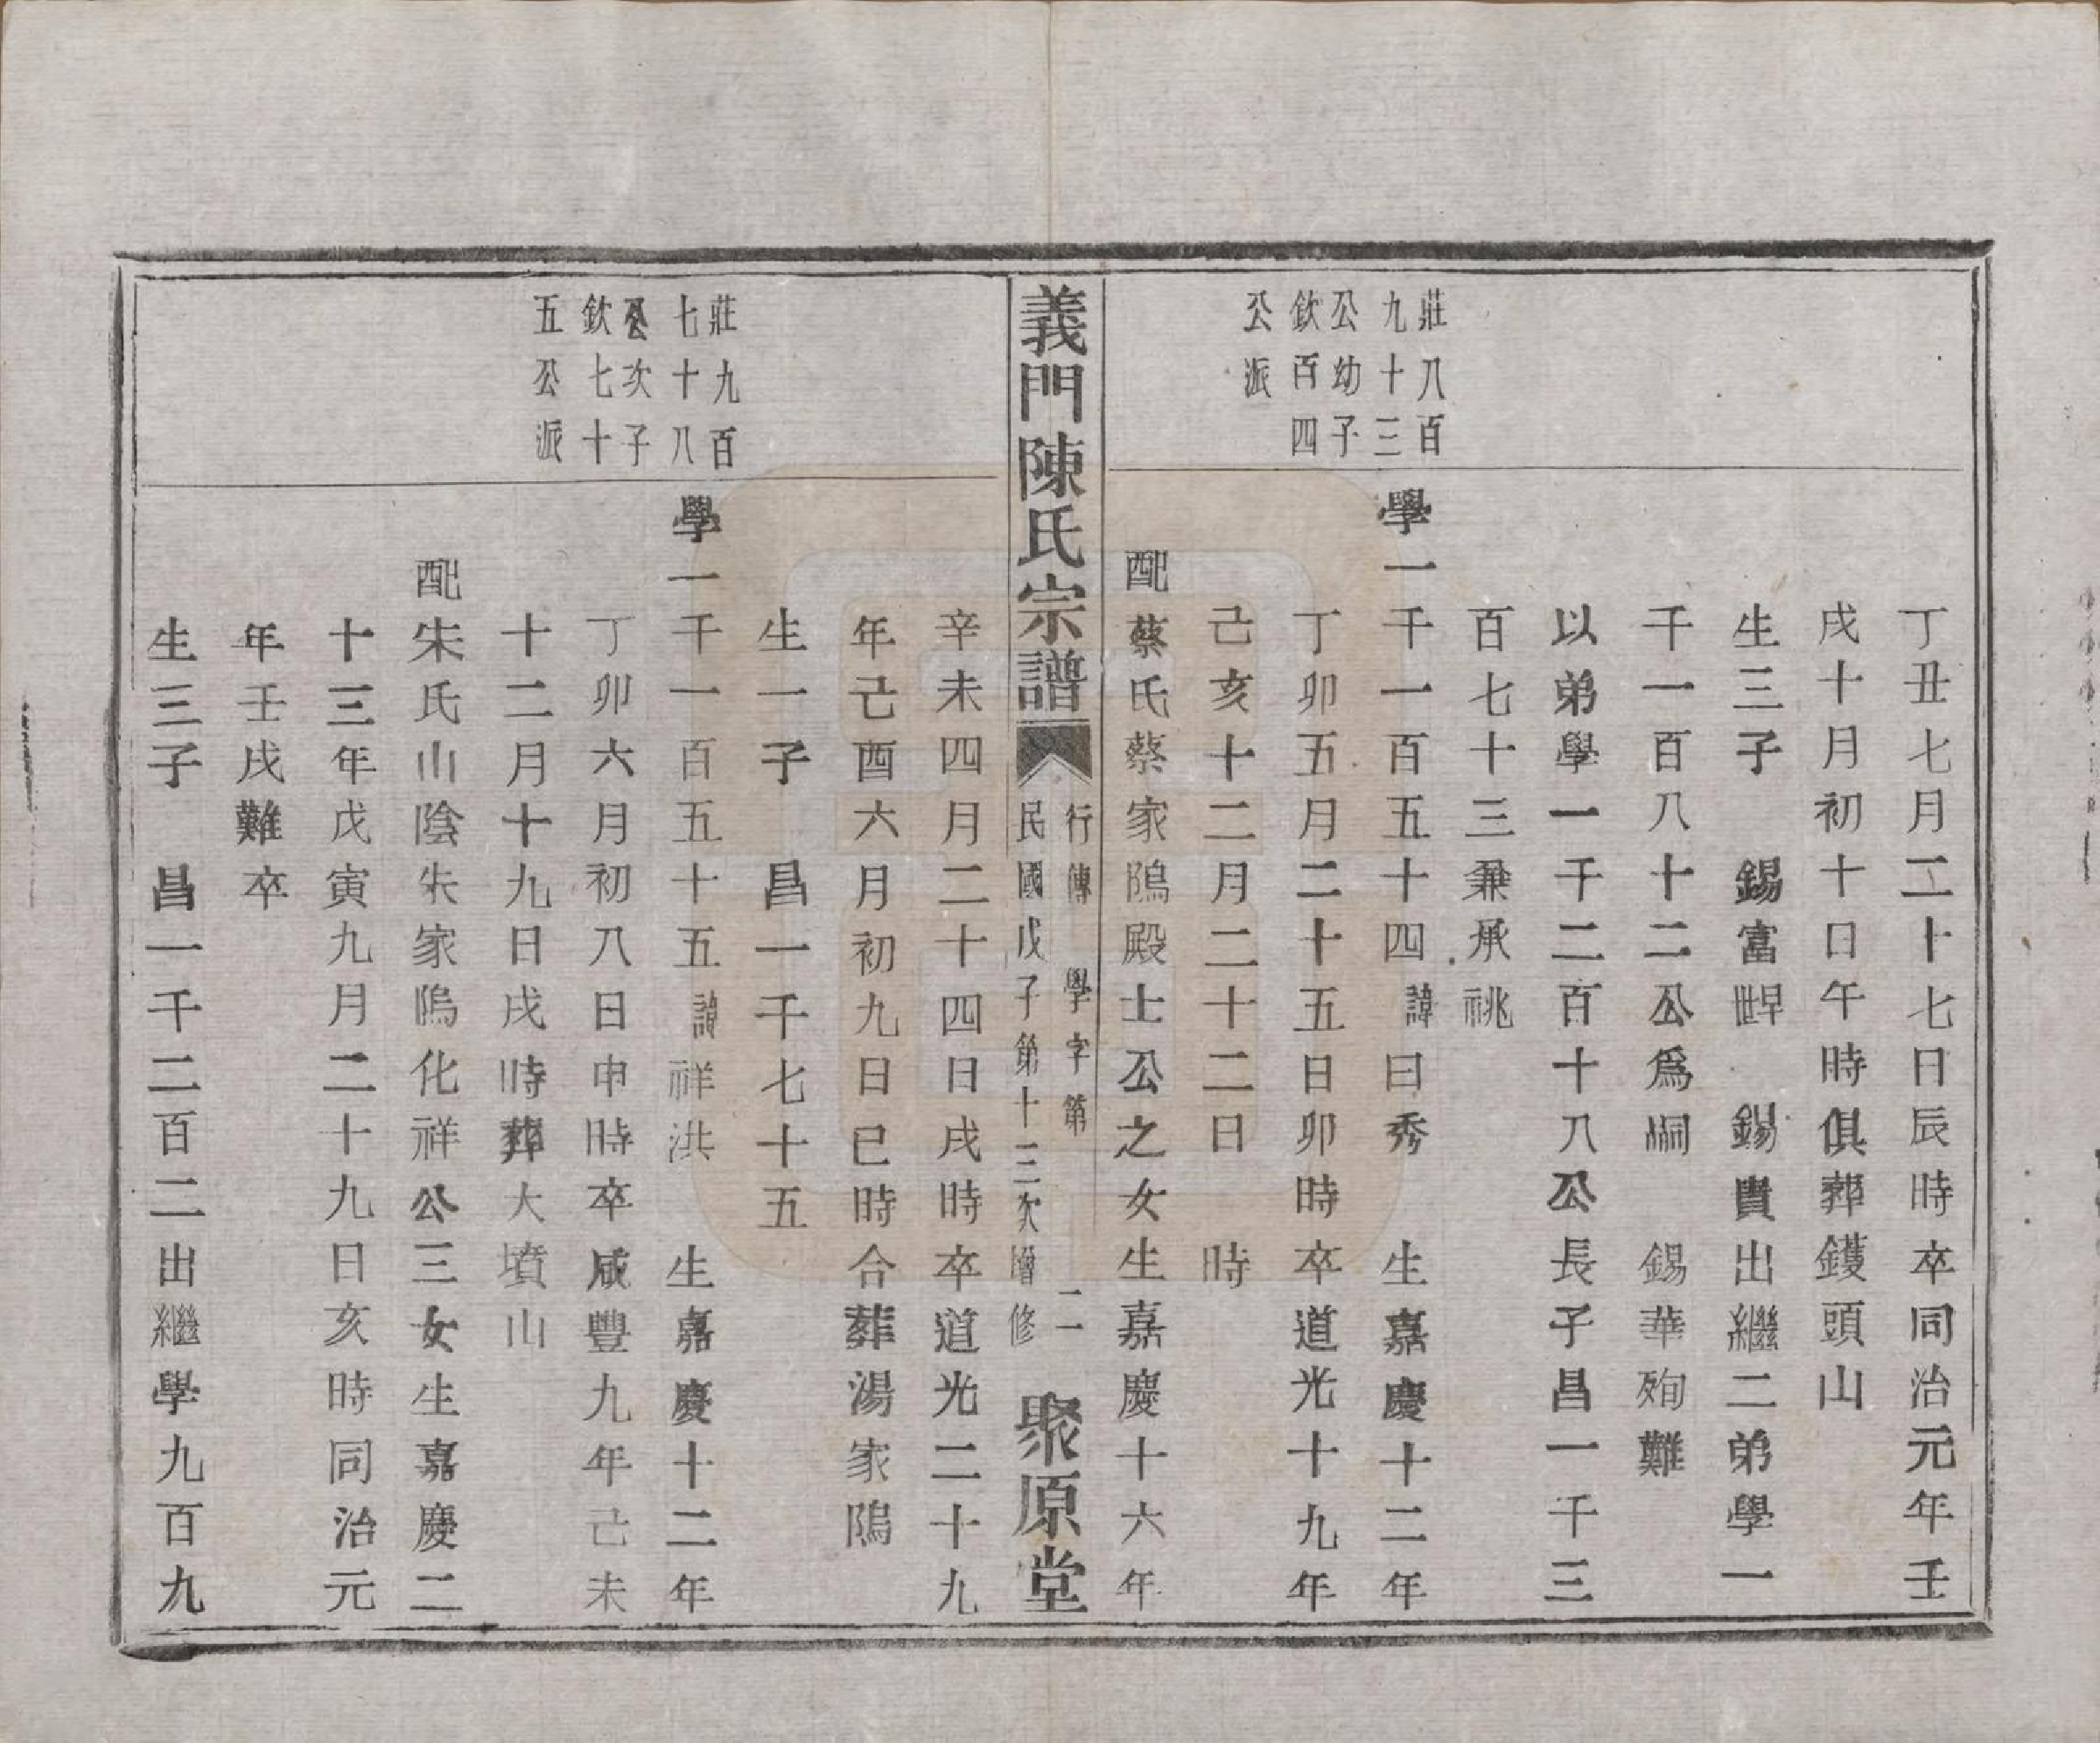 丁丑七月二十七日辰時卒同治元年壬
戌十月初十日午時俱葬鑊頭山
生三子　錫富　錫貴出繼二弟學一
千一百八十二公爲嗣　錫華殉難
以弟學一千二百十八公長子昌一千三
百七十三兼承祧
莊八百
九十三
公幼子
欽百四
公派
學一千一百五十四　諱曰秀　生嘉慶十二年
丁卯五月二十五日卯時卒道光十九年
己亥十二月二十二日　時
配蔡氏蔡家隖殿士公之女生嘉慶十六年
義門陳氏宗譜
行傳　學字第　二一
民國戊子第十三次增修
聚原堂
辛未四月二十四日戌時卒道光二十九
年己酉六月初九日巳時合葬湯家隖
生一子　昌一千七十五
莊九百
七十八
公次子
欽七十
五公派
學一千一百五十五　諱祥洪　生嘉慶十二年
丁卯六月初八日申時卒咸豐九年己未
十二月十九日戌時葬大墳山
配朱氏山陰朱家隖化祥公三女生嘉慶二
十三年戊寅九月二十九日亥時同治元
年壬戌難卒
生三子　昌一千二百二出繼學九百九